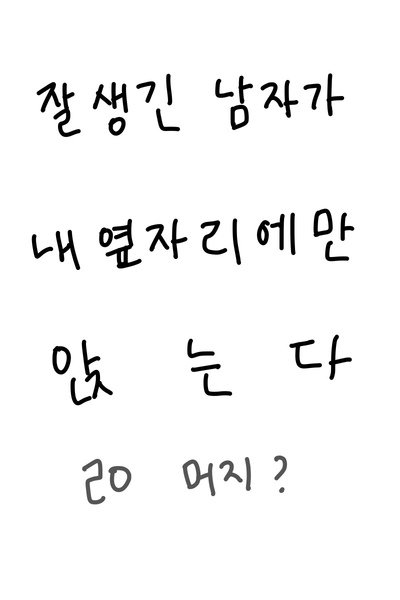 잘생긴 남자가
내 옆자리에만
앉는다
20 머지?